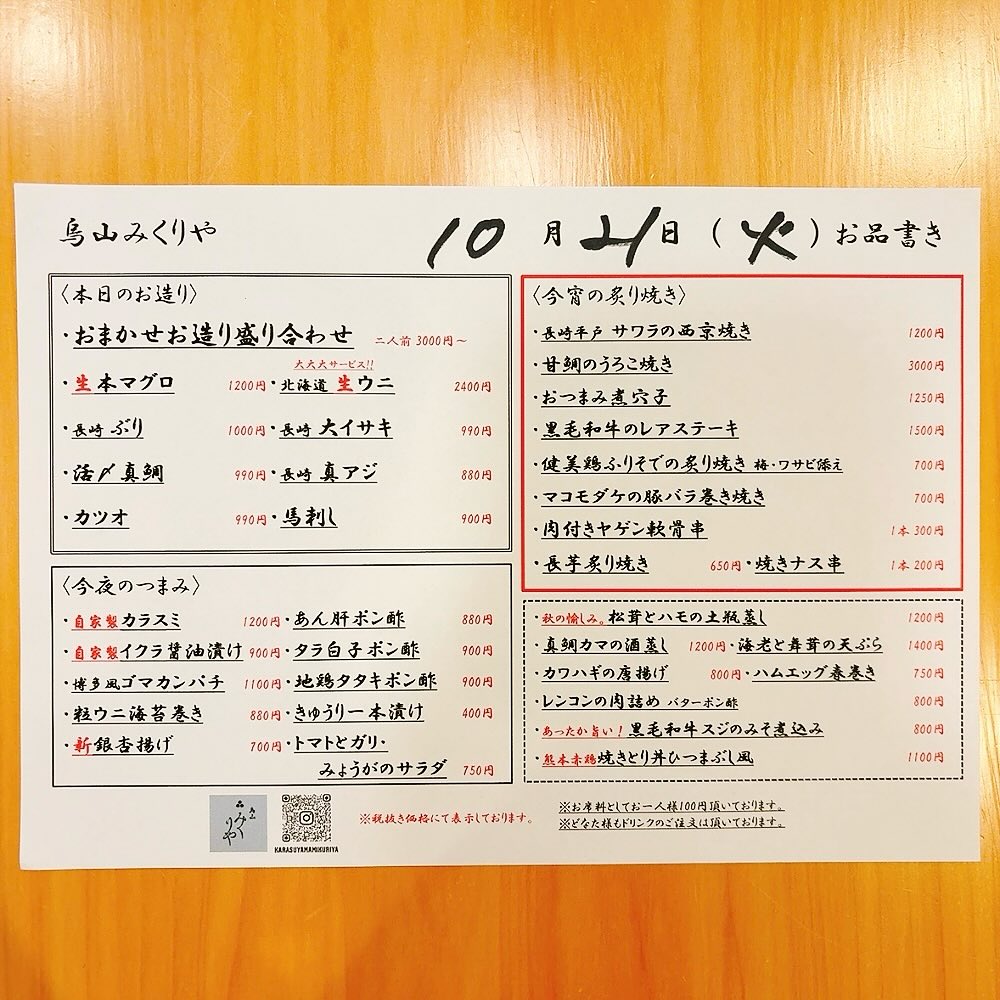 烏山みくりや 10月21日(火)お品書き
〈本日のお造り〉
・おまかせお造り盛り合わせ 二人前 3000円〜
大大大サービス!!
・生本マグロ 1200円・北海道 生ウニ 2400円
・長崎 ぶり 1000円・長崎 大イサキ 990円
・活〆真鯛 990円・長崎 真アジ 880円
・カツオ 990円・馬刺し 900円
〈今夜のつまみ〉
・自家製カラスミ 1200円・あん肝ポン酢 880円
・自家製イクラ醤油漬け 900円・タラ白子ポン酢 900円
・博多風ゴマカンパチ 1100円・地鶏タタキポン酢 900円
・粒ウニ海苔巻き 880円・きゅうり一本漬け 400円
・新銀杏揚げ 700円・トマトとガリ・
みょうがのサラダ 750円
〈今宵の炙り焼き〉
・長崎平戸 サワラの西京焼き 1200円
・甘鯛のうろこ焼き 3000円
・おつまみ煮穴子 1250円
・黒毛和牛のレアステーキ 1500円
・健美鶏ふりそでの炙り焼き 梅・ワサビ添え 700円
・マコモダケの豚バラ巻き焼き 700円
・肉付きヤゲン軟骨串 1本 300円
・長芋炙り焼き 650円・焼きナス串 1本 200円
・秋の愉しみ。松茸とハモの土瓶蒸し 1200円
・真鯛カマの酒蒸し 1200円・海老と舞茸の天ぷら 1400円
・カワハギの唐揚げ 800円・ハムエッグ春巻き 750円
・レンコンの肉詰め バターポン酢 800円
・あったか旨い!黒毛和牛スジのみそ煮込み 800円
・熊本赤鶏焼きとり丼ひつまぶし風 1100円
みくりや
KARASUYAMAMIKURIYA
※税抜き価格にて表示しております。
※お席料としてお一人様100円頂いております。
※どなた様もドリンクのご注文は頂いております。